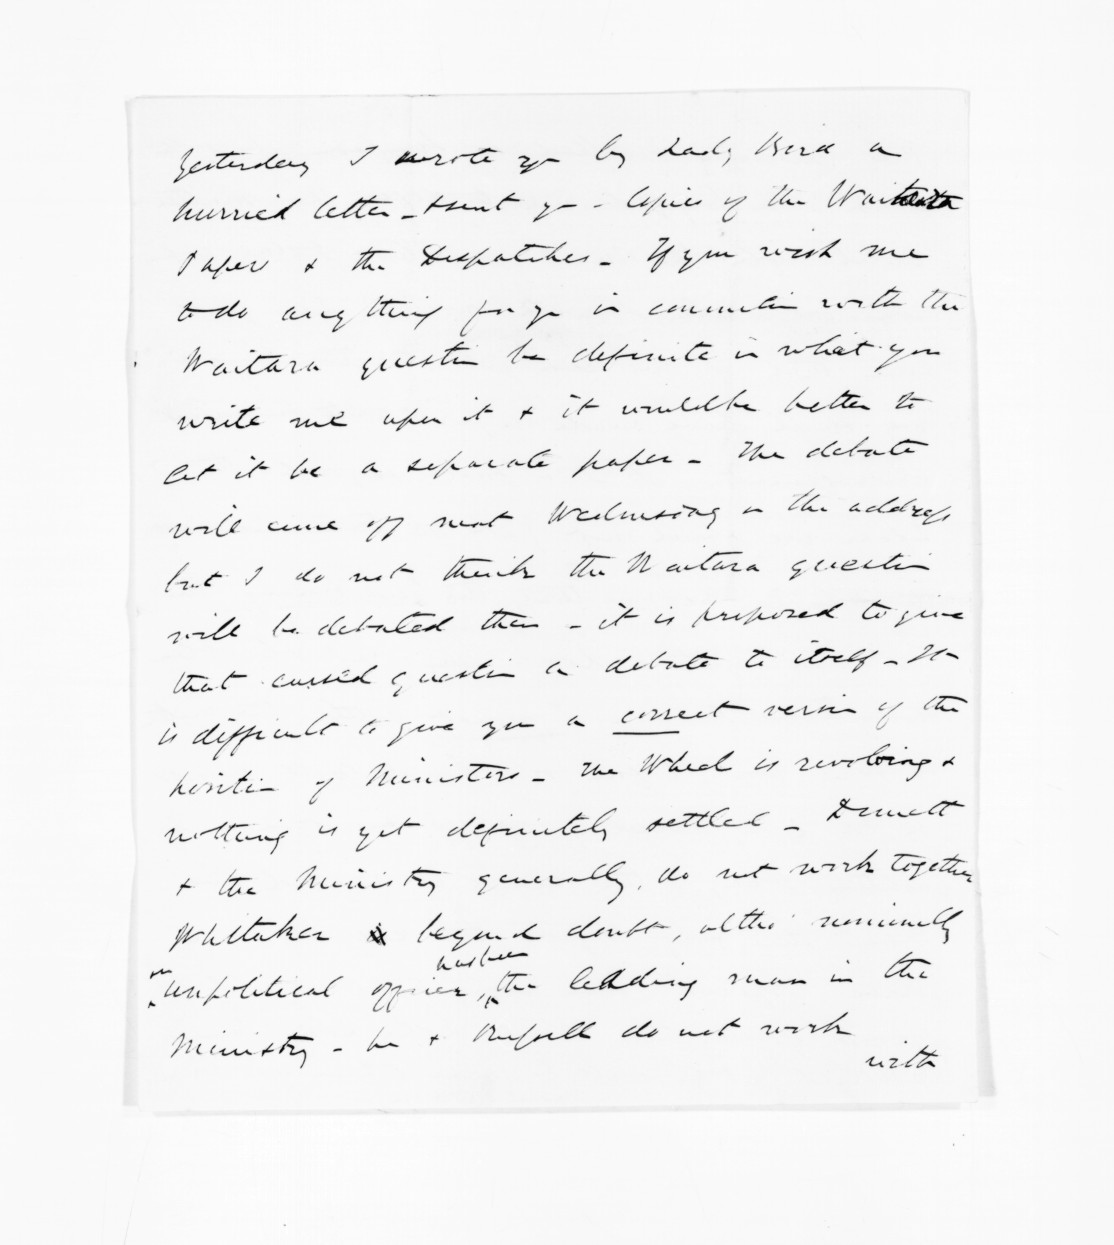 Yesterday I wrote yo by Lady Bird a
hurried letter - & sent yo - Copies of the Waitara
Paper & the Despatches - If you wish me
to do any thing for yo in connection with the
Waitara question be definite in what you
write me upon it & it would be better to
let it be a separate paper - The debate
will come off next Wednesday on the address
but I do not think the Waitara question
will be debated then - it is proposed to give
that cursed question a debate to itself - It
is difficult to give you a correct version of the
position of Ministers - The Wheel is revolving &
nothing is yet definitely settled - Domett
& the Ministry generally, do not work together
Whitaker beyond doubt, altho' nominally
an unpolitical officer, has been the leading man in the
Ministry - he & Russell do not work
with